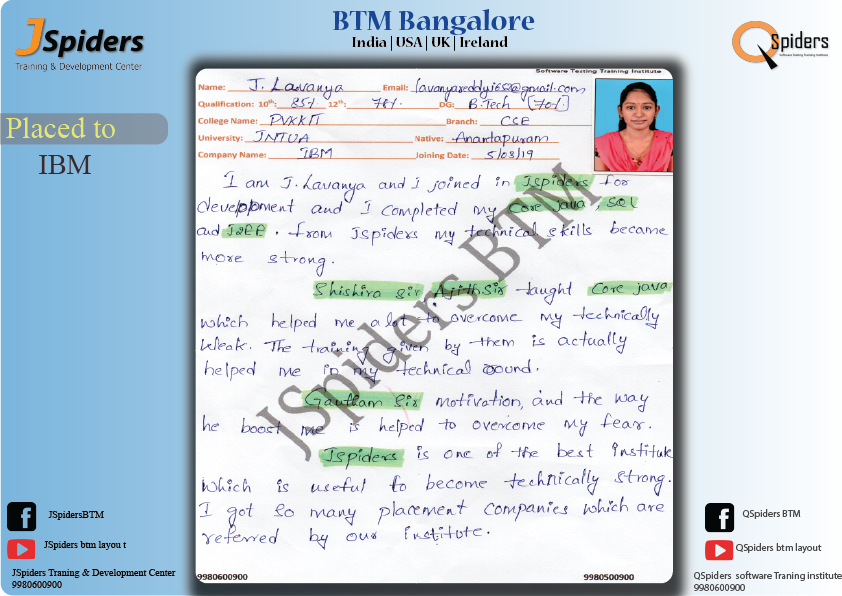 JSpiders
Training & Development Center
BTM Bangalore
India | USA | UK | Ireland
QSpiders
Software Testing Training Institute
Placed to
IBM
Software Testing Training Institute
Name: J. Lavanya Email: lavanyareddy168@gmail.com
Qualification: 10th: 85% 12th: 78% DG: B.Tech [70%]
College Name: PVKKIT Branch: CSE
University: JNTUA Native: Anantapuram
Company Name: IBM Joining Date: 5/08/19
I am J. Lavanya and I joined in Jspiders for
development and I completed my Core java, SQL
and J2EE. From Jspiders my technical skills became
more strong.
Shishira sir Ajith Sir taught Core java
which helped me a lot to overcome my technically
weak. The training given by them is actually
helped me in my technical round.
Gautham Sir motivation, and the way
he boost me is helped to overcome my fear.
Jspiders is one of the best institute
which is useful to become technically strong.
I got so many placement companies which are
referred by our institute.
JSpiders BTM
9980600900 9980500900
JSpidersBTM
JSpiders btm layou t
JSpiders Traning & Development Center
9980600900
QSpiders BTM
QSpiders btm layout
QSpiders software Traning institute
9980600900